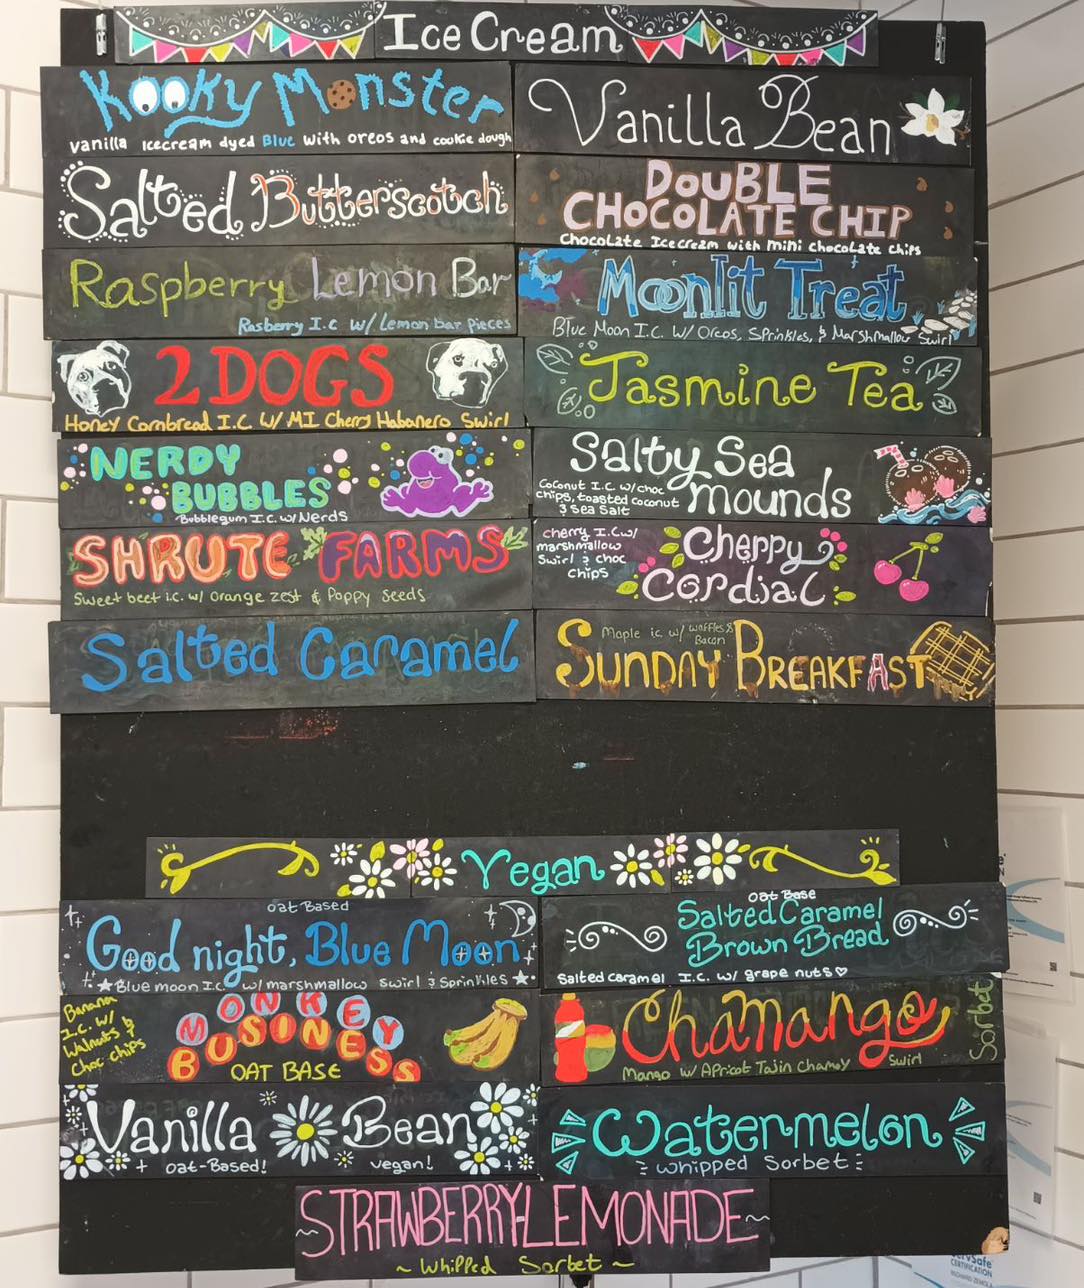 Ice Cream
Kooky Monster
vanilla icecream dyed Blue with oreos and cookie dough
Vanilla Bean
Salted Butterscotch
DOUBLE
CHOCOLATE CHIP
Chocolate Icecream with mini chocolate chips
Raspberry Lemon Bar
Rasberry I.C W/ Lemon bar pieces
Moonlit Treat
Blue Moon I.C. W/ Oreos, Sprinkles, & Marshmallow Swirl
2 DOGS
Honey Cornbread I.C W/ MI Cherry Habanero Swirl
Jasmine Tea
NERDY
BUBBLES
Bubblegum I.C. w/ Nerds
Salty Sea
mounds
Coconut I.C w/ choc
chips, toasted coconut
& Sea Salt
SHRUTE FARMS
Sweet beet i.c. w/ orange zest & Poppy seeds
cherry I.C w/
marshmallow
Swirl & choc
chips
Cherry
Cordial
Salted Caramel
Maple ic w/ waffles &
Bacon
SUNDAY BREAKFAST
Vegan
oat Based
Good night, Blue Moon
Blue moon I.C. w/ marshmallow swirl & Sprinkles
oat Base
Salted Caramel
Brown Bread
Salted caramel I.C. w/ grape nuts
Banana
I.C. w/
Walnuts &
Choc chips
MONKEY
BUSINESS
OAT BASE
Chamango
Sorbet
Mango w/ Apricot Tajin Chamoy Swirl
Vanilla Bean
oat-Based! vegan!
Watermelon
whipped Sorbet
STRAWBERRY-LEMONADE
~ Whipped Sorbet ~
ServSafe
CERTIFICATION